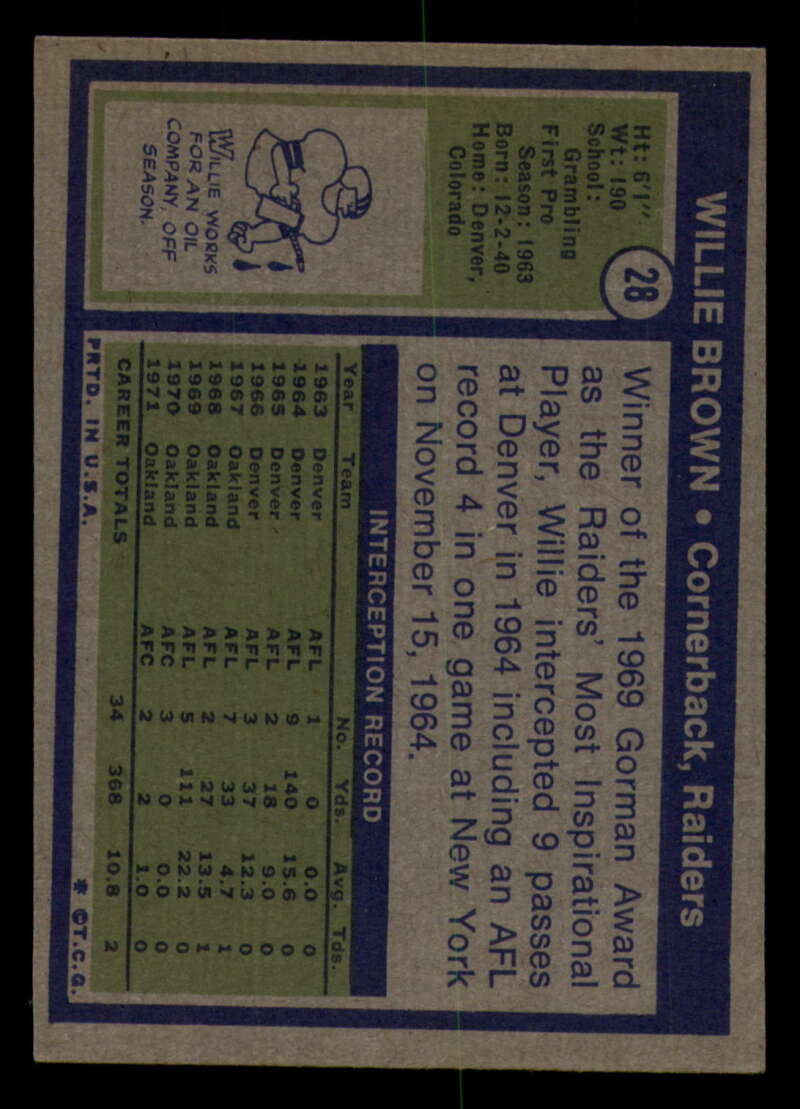 WILLIE BROWN • Cornerback, Raiders
28
Ht: 6'1"
Wt: 190
School:
Grambling
First Pro
Season: 1963
Born: 12-2-40
Home: Denver,
Colorado
WILLIE WORKS
FOR AN OIL
COMPANY, OFF
SEASON.
Winner of the 1969 Gorman Award
as the Raiders' Most Inspirational
Player, Willie intercepted 9 passes
at Denver in 1964 including an AFL
record 4 in one game at New York
on November 15, 1964.
INTERCEPTION RECORD
Year Team No. Yds. Avg. Tds.
1963 Denver AFL 1 0 0.0 0
1964 Denver AFL 9 140 15.6 0
1965 Denver AFL 2 18 9.0 0
1966 Denver AFL 3 37 12.3 0
1967 Oakland AFL 7 33 4.7 1
1968 Oakland AFL 2 27 13.5 1
1969 Oakland AFL 5 111 22.2 0
1970 Oakland AFC 3 0 0.0 0
1971 Oakland AFC 2 2 1.0 0
CAREER TOTALS 34 368 10.8 2
PRTD. IN U.S.A. * ©T.C.G.